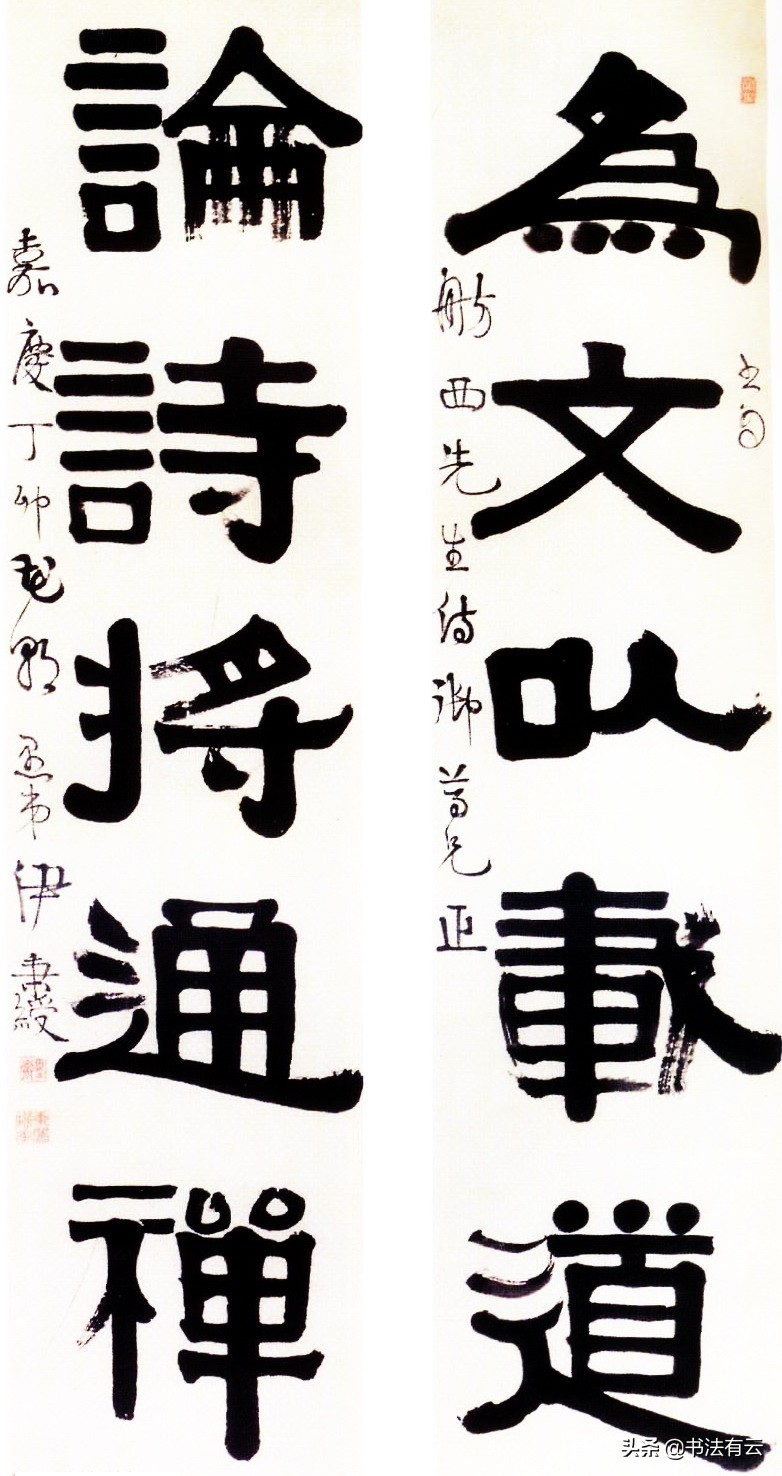 為文以載道
舫西先生侍御尊兄正
論詩將通禪
嘉慶丁卯花朝愚弟伊秉綬
头条 @书法有云